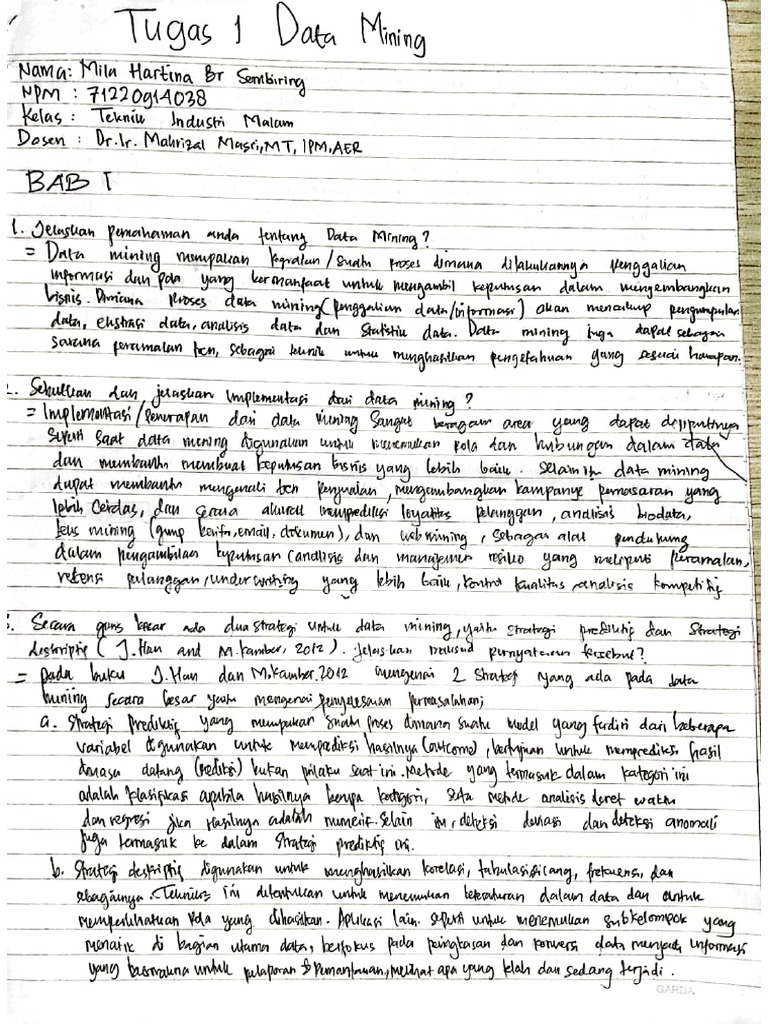 Tugas 1 Data Mining
Nama: Mila Hartina Br Sembiring
NPM : 71220914038
Kelas : Teknik Industri Malam
Dosen : Dr.Ir. Mahrizal Masri, MT, IPM, AER
BAB I
1. Jelaskan pemahaman anda tentang Data Mining?
= Data mining merupakan kegiatan/suatu proses dimana dilakukannya penggalian
informasi dan pola yang bermanfaat untuk mengambil keputusan dalam mengembangkan
bisnis. Dimana proses data mining (penggalian data/informasi) akan mencakup pengumpulan
data, ekstrasi data, analisis data dan statistik data. Data mining juga dapat sebagai
sarana peramalan tren, sebagai teknik untuk menghasilkan pengetahuan yang sesuai harapan.
2. Sebutkan dan jelaskan implementasi dari data mining?
= Implementasi/penerapan dari data mining sangat beragam area yang dapat diliputinya
seperti saat data mining digunakan untuk menemukan pola dan hubungan dalam data
dan membantu membuat keputusan bisnis yang lebih baik. Selain itu data mining
dapat membantu mengenali tren penjualan, mengembangkan kampanye pemasaran yang
lebih cerdas, dan secara akurat memprediksi loyalitas pelanggan, analisis biodata,
teks mining (grup berita, email, dokumen), dan web mining, sebagai alat pendukung
dalam pengambilan keputusan (analisis dan manajemen resiko yang meliputi peramalan,
retensi pelanggan, underwriting yang lebih baik, kontrol kualitas, analisis kompetitif
3. Secara garis besar ada dua strategi untuk data mining, yaitu strategi prediktif dan strategi
deskriptif (J.Han and M.Kamber, 2012). Jelaskan maksud pernyataan tersebut?
= pada buku J.Han dan M.Kamber.2012 mengenai 2 strategi yang ada pada data
mining secara besar yaitu mengenai penyelesaian permasalahan;
a. Strategi Prediktif yang merupakan suatu proses dimana suatu model yang terdiri dari beberapa
variabel digunakan untuk memprediksi hasilnya (outcome), bertujuan untuk memprediksi hasil
dimasa datang (prediksi) bukan prilaku saat ini. Metode yang termasuk dalam kategori ini
adalah klasifikasi apabila hasilnya berupa kategori, serta metode analisis deret waktu
dan regresi jika hasilnya adalah numerik. Selain itu, deteksi deviasi dan deteksi anomali
juga termasuk ke dalam strategi prediktif ini.
b. Strategi deskriptif digunakan untuk menghasilkan korelasi, tabulasi silang, frekuensi, dan
sebagainya. Teknik ini ditentukan untuk menemukan keteraturan dalam data dan untuk
memperlihatkan pola yang dihasilkan. Aplikasi lain seperti untuk menemukan subkelompok yang
menarik di bagian utama data, berfokus pada peringkasan dan konversi data menjadi informasi
yang bermakna untuk pelaporan & pemantauan, melihat apa yang telah dan sedang terjadi.
GARDA